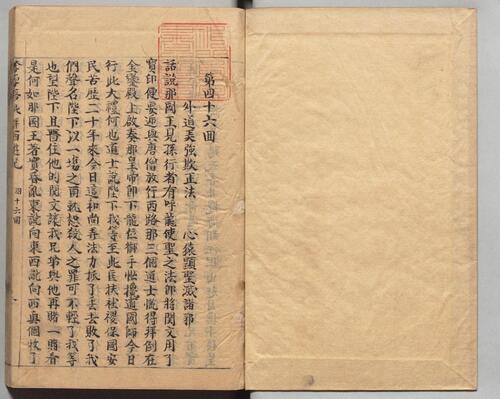 第四十六回
外道美強欺正法　心猿顯聖滅諸邪
話說那國王見孫行者有呼龍使聖之法即將關文用了
寶印便要遞與唐僧放行西路那三個道士慌得拜倒在
金鑾殿上啟奏那皇帝即下龍位御手忙攙道國師今日
行此大禮何也道士說陛下我等至此匡扶社稷保國安
民苦歷二十年來今日這和尚弄法力抓了丟去敗了我
們聲名陛下以一場之雨就恕殺人之罪可不輕了我等
也望陛下且留住他的關文讓我兄弟與他再賭一賭看
是何如那國王著實昏亂東說向東西說向西真個收了
四十六回